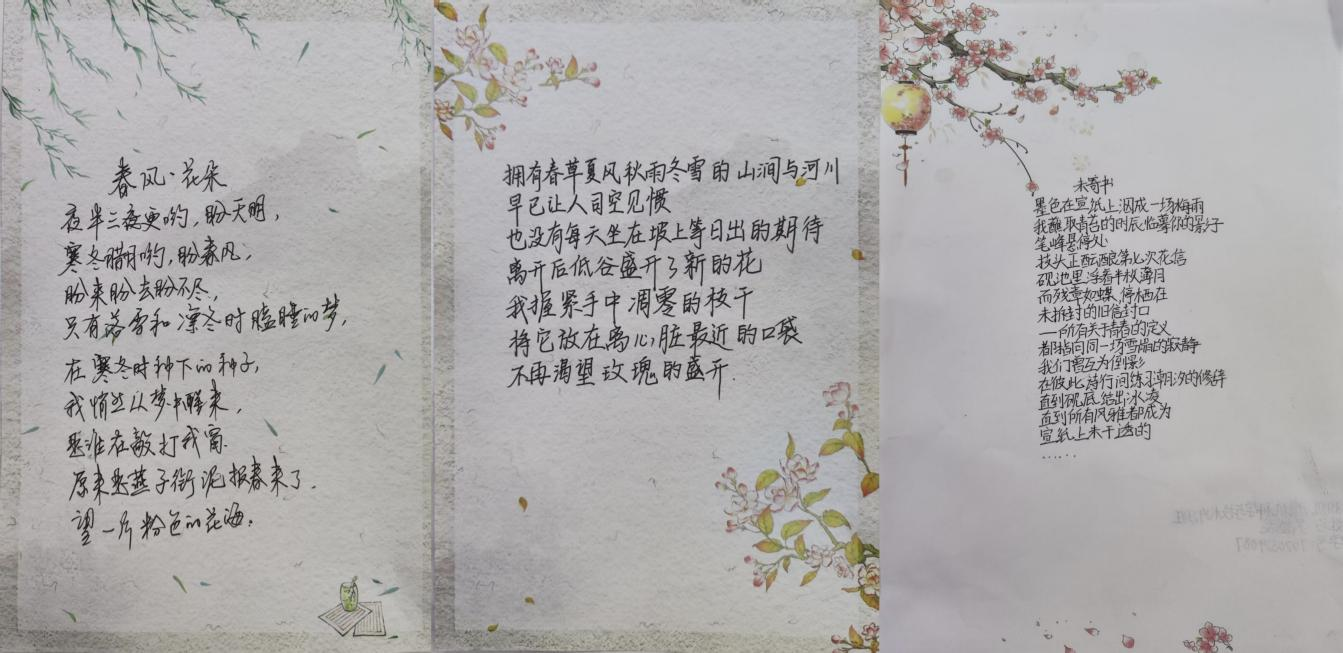 春风·花朵
夜半三夜更哟,盼天明,
寒冬腊月哟,盼春风,
盼来盼去盼不尽,
只有落雪和凛冬时瞌睡的梦,
在寒冬时种下的种子,
我悄悄从梦中醒来,
是谁在敲打我窗
原来是燕子衔泥报春来了.
望一片粉色的花海.
拥有春草夏风秋雨冬雪的山涧与河川
早已让人司空见惯
也没有每天坐在坡上等日出的期待
离开后低谷盛开了新的花
我握紧手中凋零的枝干
将它放在离心脏最近的口袋
不再渴望玫瑰的盛开.
未寄书
墨色在宣纸上洇成一场梅雨
我蘸取青苔的时辰,临摹你的影子
笔峰悬停处
枝头正酝酿第七次花信
砚池里浮着半枚薄月
而残章如蝶,停栖在
未拆封的旧信封口
—所有关于青春的定义
都指向同一场雪崩的寂静
我们曾互为倒影
在彼此诗行间练习潮汐的修辞
直到砚底结出冰凌
直到所有风雅都成为
宣纸上未干透的
……